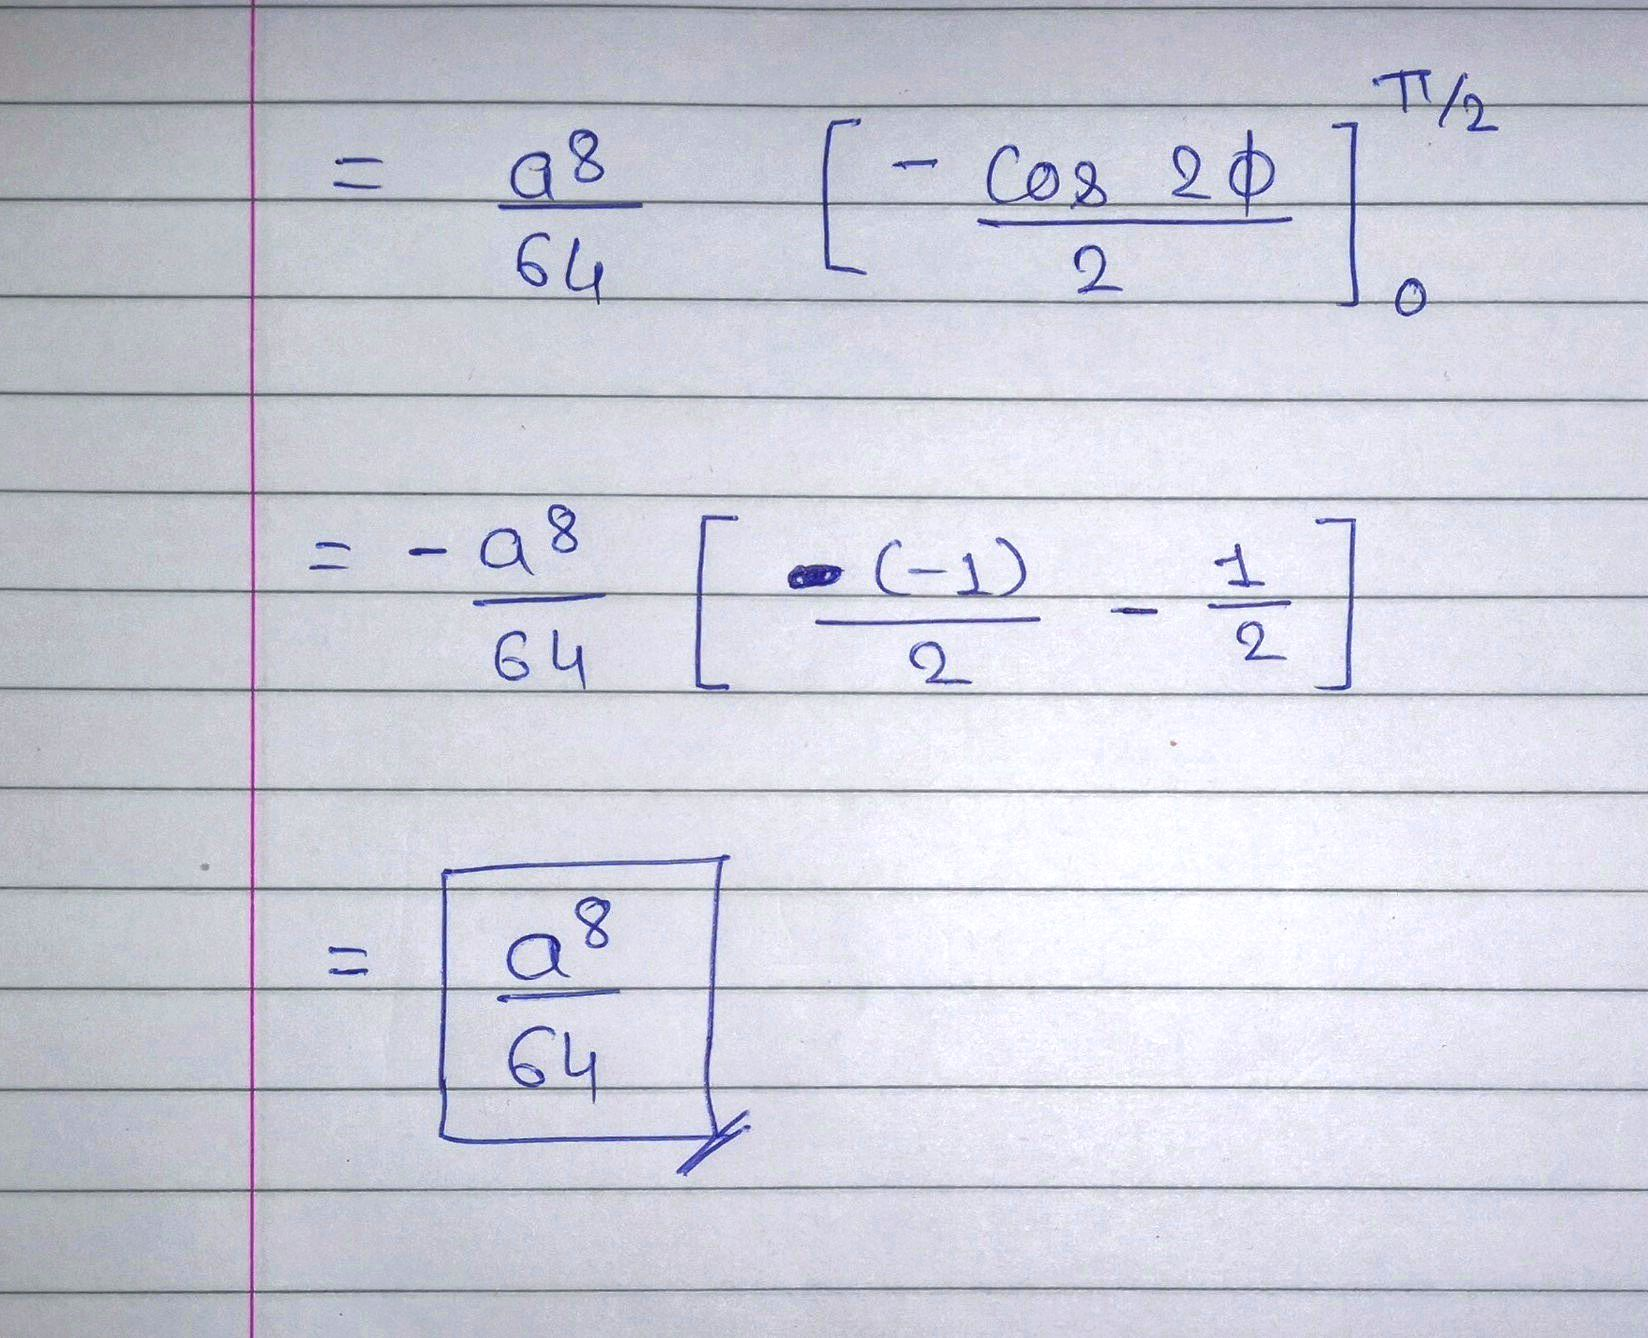 = a⁸/64 [ - cos 2ϕ / 2 ]₀^π/2
= - a⁸/64 [ (-1)/2 - 1/2 ]
= a⁸/64